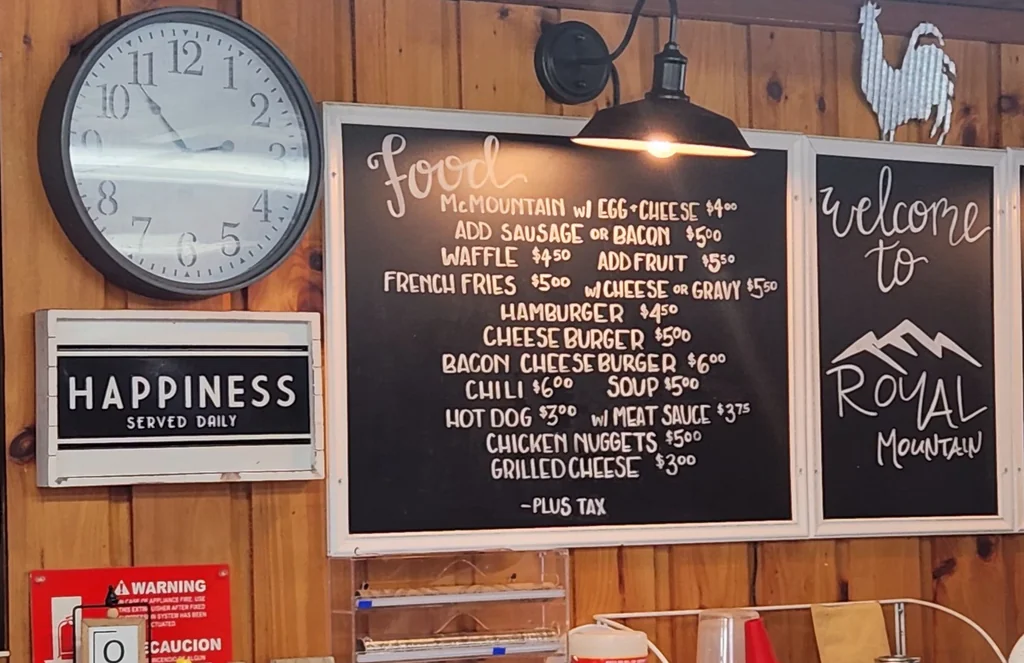 12
11
1
10
2
9
3
8
4
7
5
6
Food
McMOUNTAIN w/ EGG+CHEESE $4⁰⁰
ADD SAUSAGE OR BACON $5⁰⁰
WAFFLE $4⁵⁰ ADD FRUIT $5⁵⁰
FRENCH FRIES $5⁰⁰ w/CHEESE OR GRAVY $5⁵⁰
HAMBURGER $4⁵⁰
CHEESEBURGER $5⁰⁰
BACON CHEESEBURGER $6⁰⁰
CHILI $6⁰⁰ SOUP $5⁰⁰
HOT DOG $3⁰⁰ w/ MEAT SAUCE $3⁷⁵
CHICKEN NUGGETS $5⁰⁰
GRILLED CHEESE $3⁰⁰
-PLUS TAX
welcome
to
ROYAL
MOUNTAIN
HAPPINESS
SERVED DAILY
WARNING
IN CASE OF APPLIANCE FIRE, USE
THIS EXTINGUISHER AFTER FIXED
SYSTEM HAS BEEN
ACTUATED
PRECAUCION
O